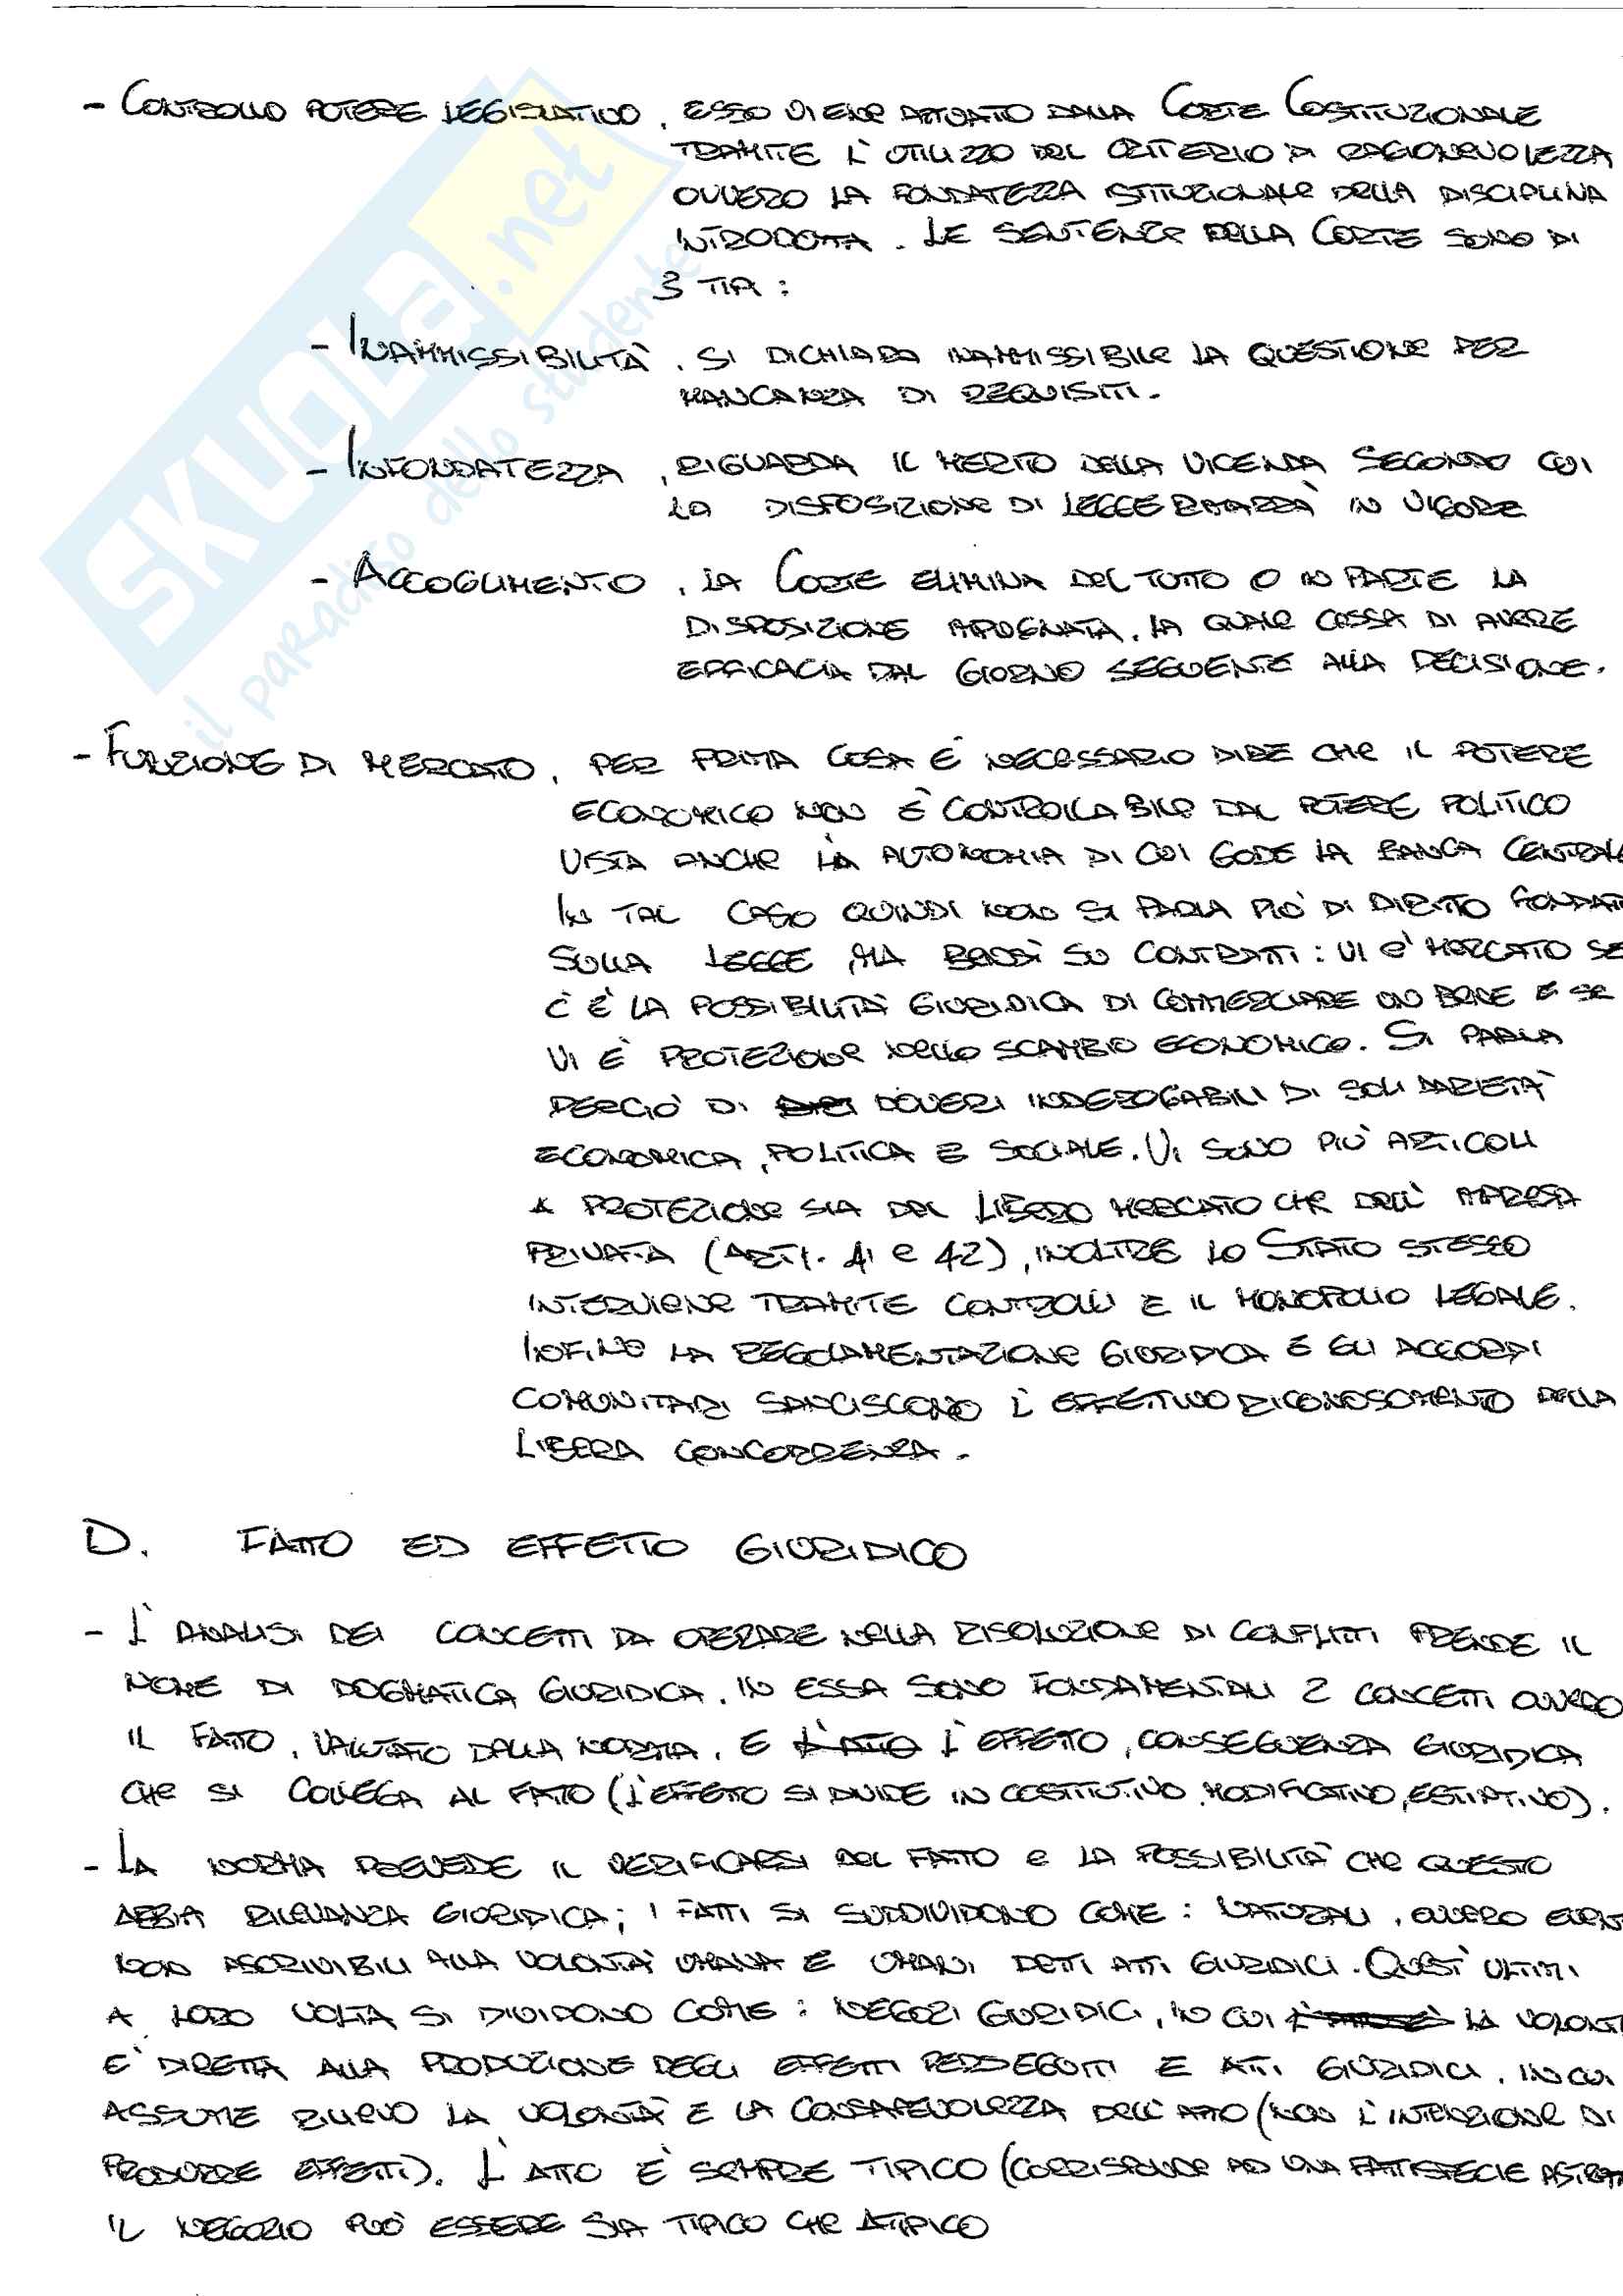 SKUOLA.net
il paradiso dello studente
- CONTROLLO POTERE LEGISLATIVO, ESSO VIENE ATTUATO DALLA CORTE COSTITUZIONALE
TRAMITE L'UTILIZZO DEL CRITERIO DI RAGIONEVOLEZZA
OVVERO LA FONDATEZZA ISTITUZIONALE DELLA DISCIPLINA
INTRODOTTA. LE SENTENZE DELLA CORTE SONO DI
3 TIPI:
- INAMMISSIBILITÀ, SI DICHIARA INAMMISSIBILE LA QUESTIONE PER
MANCANZA DI REQUISITI.
- INFONDATEZZA, RIGUARDA IL MERITO DELLA VICENDA SECONDO CUI
LA DISPOSIZIONE DI LEGGE RIMARRÀ IN VIGORE
- ACCOGLIMENTO, LA CORTE ELIMINA DEL TUTTO O IN PARTE LA
DISPOSIZIONE IMPUGNATA, LA QUALE CESSA DI AVERE
EFFICACIA DAL GIORNO SEGUENTE ALLA DECISIONE.
- FUNZIONE DI MERCATO, PER PRIMA COSA È NECESSARIO DIRE CHE IL POTERE
ECONOMICO NON È CONTROLLABILE DAL POTERE POLITICO
VISTA ANCHE LA AUTONOMIA DI CUI GODE LA BANCA CENTRALE
IN TAL CASO QUINDI NON SI PARLA PIÙ DI DIRITTO FONDAT
SULLA LEGGE, MA BENSÌ SU CONTRATTI: VI È MERCATO SE
C'È LA POSSIBILITÀ GIURIDICA DI COMMERCIARE UN BENE E SE
VI È PROTEZIONE NELLO SCAMBIO ECONOMICO. SI PARLA
PERCIÒ DI DOVERI INDEROGABILI DI SOLIDARIETÀ
ECONOMICA, POLITICA E SOCIALE. VI SONO PIÙ ARTICOLI
A PROTEZIONE SIA DEL LIBERO MERCATO CHE DELL'IMPRESA
PRIVATA (ARTT. 41 e 42), INOLTRE LO STATO STESSO
INTERVIENE TRAMITE CONTROLLI E IL MONOPOLIO LEGALE.
INFINE LA REGOLAMENTAZIONE GIURIDICA E GLI ACCORDI
COMUNITARI SANCISCONO L'EFFETTIVO RICONOSCIMENTO DELLA
LIBERA CONCORRENZA.
D. FATTO ED EFFETTO GIURIDICO
- L'ANALISI DEI CONCETTI DA OPERARE NELLA RISOLUZIONE DI CONFLITTI PRENDE IL
NOME DI DOGMATICA GIURIDICA. IN ESSA SONO FONDAMENTALI 2 CONCETTI OVVERO
IL FATTO, VALUTATO DALLA NORMA, E L'ATTO L'EFFETTO, CONSEGUENZA GIURIDICA
CHE SI COLLEGA AL FATTO (L'EFFETTO SI DIVIDE IN COSTITUTIVO, MODIFICATIVO, ESTINTIVO).
- LA NORMA PREVEDE IL VERIFICARSI DEL FATTO e LA POSSIBILITÀ CHE QUESTO
ABBIA RILEVANZA GIURIDICA; I FATTI SI SUDDIVIDONO COME: NATURALI, OVVERO EVENT
NON ASCRIVIBILI ALLA VOLONTÀ UMANA E UMANI DETTI ATTI GIURIDICI. QUESTI ULTIMI
A LORO VOLTA SI DIVIDONO COME: NEGOZI GIURIDICI, IN CUI LA VOLONT
E' DIRETTA ALLA PRODUZIONE DEGLI EFFETTI PERSEGUITI E ATTI GIURIDICI, IN CUI
ASSUME RILIEVO LA VOLONTÀ E LA CONSAPEVOLEZZA DELL'ATTO (NON L'INTENZIONE DI
PRODURRE EFFETTI). L'ATTO È SEMPRE TIPICO (CORRISPONDE AD UNA FATTISPECIE ASTRATT
IL NEGOZIO PUÒ ESSERE SIA TIPICO CHE ATIPICO